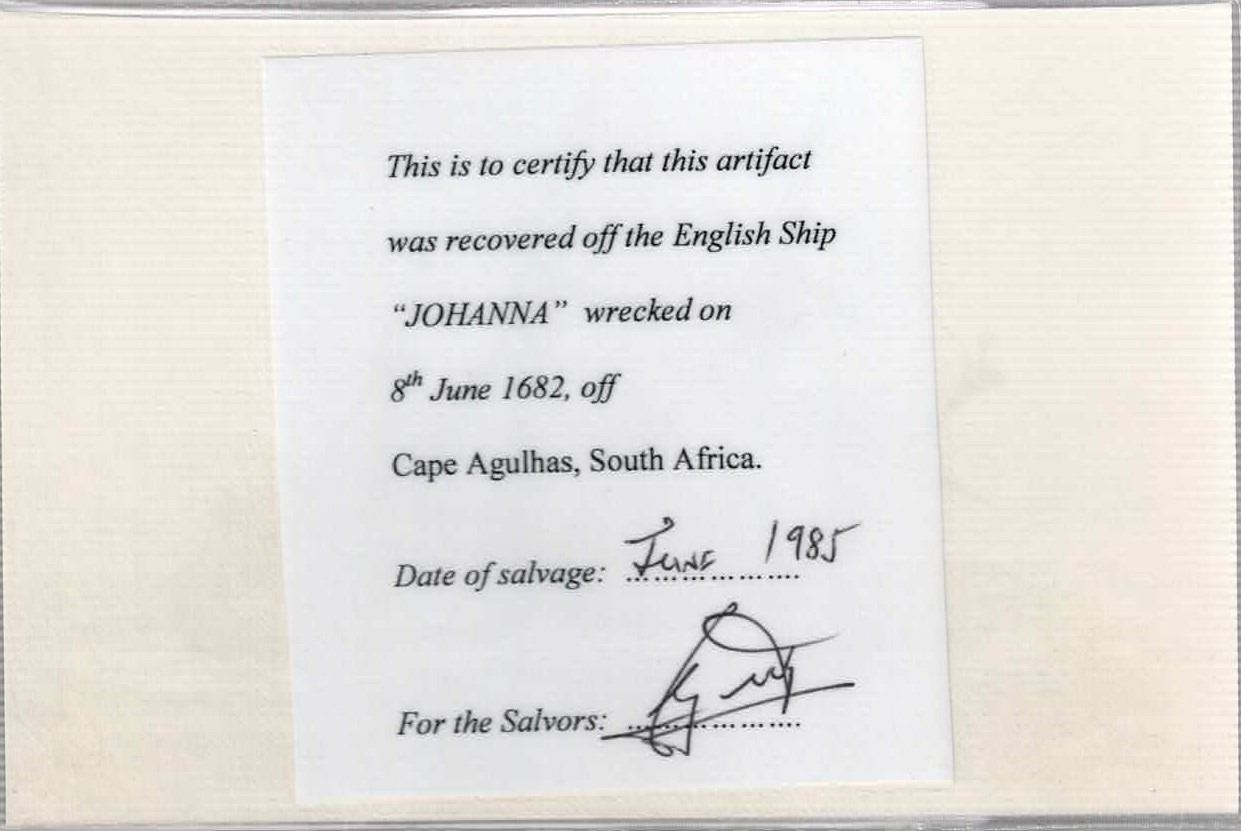 This is to certify that this artifact
was recovered off the English Ship
“JOHANNA” wrecked on
8th June 1682, off
Cape Agulhas, South Africa.
Date of salvage: June 1985
For the Salvors: